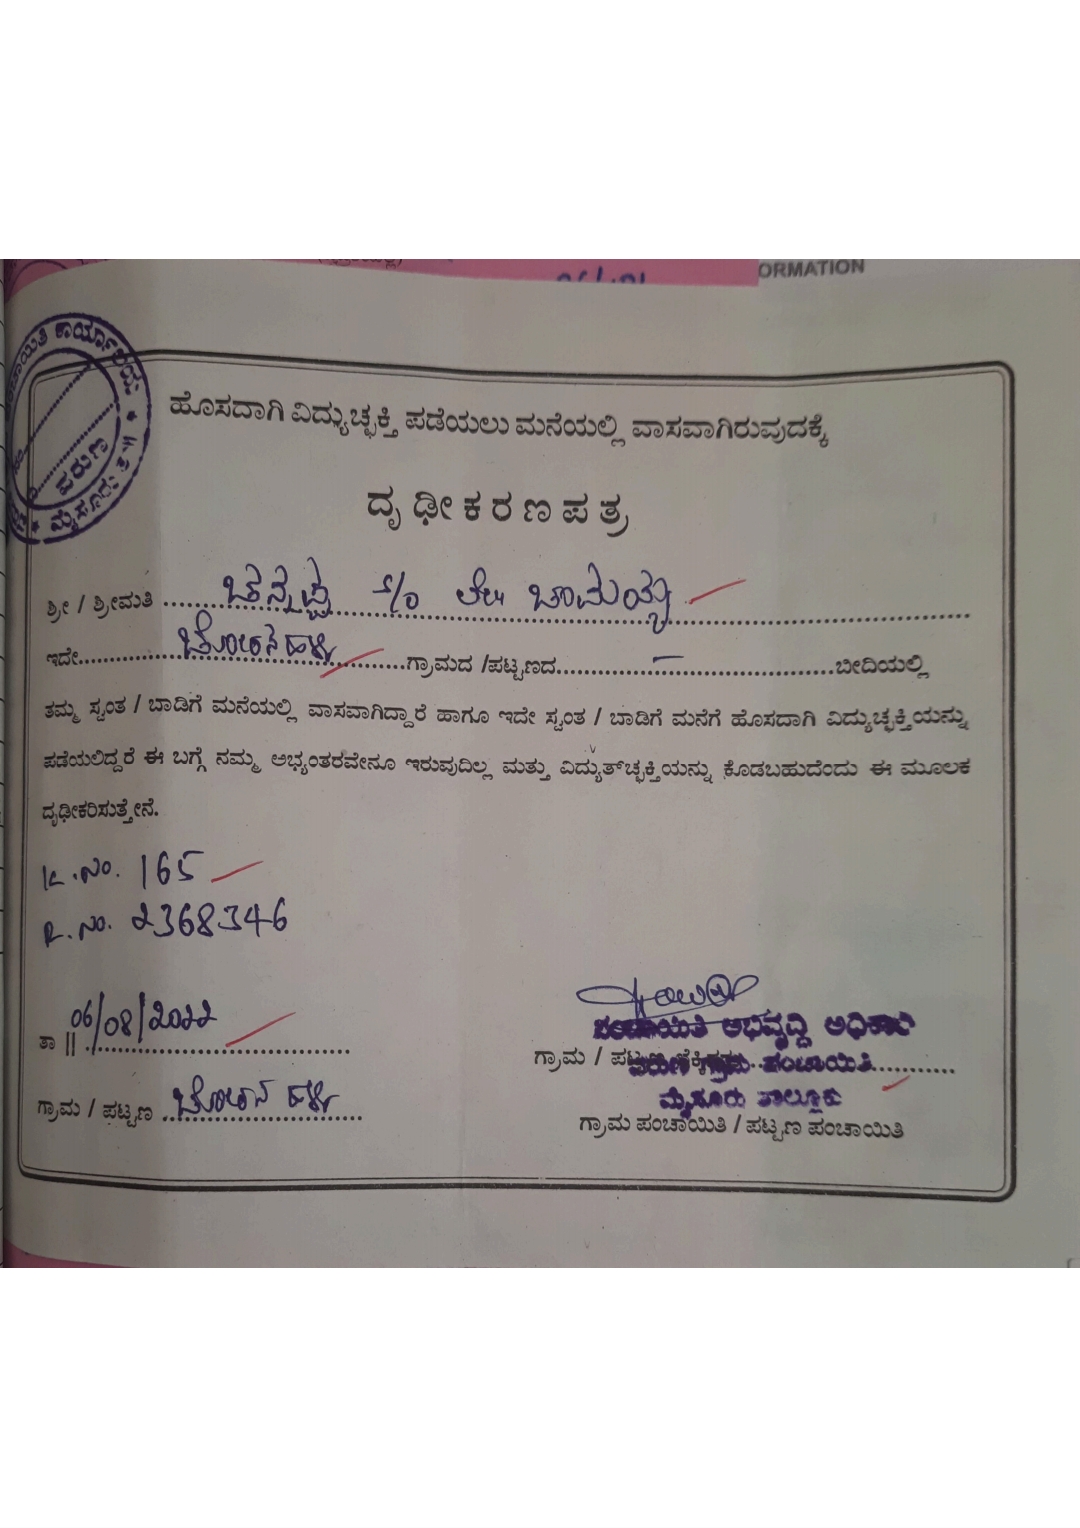 ORMATION
ಹೊಸದಾಗಿ ವಿದ್ಯುಚ್ಛಕ್ತಿ ಪಡೆಯಲು ಮನೆಯಲ್ಲಿ ವಾಸವಾಗಿರುವುದಕ್ಕೆ
ದೃಢೀಕರಣ ಪತ್ರ
ಕಾರ್ಯಾಲಯ
ವರುಣ
ಮೈಸೂರು ತಾ॥
ಶ್ರೀ / ಶ್ರೀಮತಿ ಚನ್ನಪ್ಪ S/o ಲೇ॥ ಚಾಮಯ್ಯ
ಇದೇ ಚೋರನಹಳ್ಳಿ ಗ್ರಾಮದ /ಪಟ್ಟಣದ – ಬೀದಿಯಲ್ಲಿ
ತಮ್ಮ ಸ್ವಂತ / ಬಾಡಿಗೆ ಮನೆಯಲ್ಲಿ ವಾಸವಾಗಿದ್ದಾರೆ ಹಾಗೂ ಇದೇ ಸ್ವಂತ / ಬಾಡಿಗೆ ಮನೆಗೆ ಹೊಸದಾಗಿ ವಿದ್ಯುಚ್ಛಕ್ತಿಯನ್ನು
ಪಡೆಯಲಿದ್ದರೆ ಈ ಬಗ್ಗೆ ನಮ್ಮ ಅಭ್ಯಂತರವೇನೂ ಇರುವುದಿಲ್ಲ ಮತ್ತು ವಿದ್ಯುತ್‌ಚ್ಛಕ್ತಿಯನ್ನು ಕೊಡಬಹುದೆಂದು ಈ ಮೂಲಕ
ದೃಢೀಕರಿಸುತ್ತೇನೆ.
K.ನಂ. 165
R.ನಂ. 2368346
ತಾ || 06/08/2022
ಪಂಚಾಯಿತಿ ಅಭಿವೃದ್ಧಿ ಅಧಿಕಾರಿ
ಗ್ರಾಮ / ಪಟ್ಟಣ
ವರುಣ ಗ್ರಾಮ ಪಂಚಾಯಿತಿ
ಮೈಸೂರು ತಾಲ್ಲೂಕು
ಗ್ರಾಮ / ಪಟ್ಟಣ ಚೋರನಹಳ್ಳಿ
ಗ್ರಾಮ ಪಂಚಾಯಿತಿ / ಪಟ್ಟಣ ಪಂಚಾಯಿತಿ